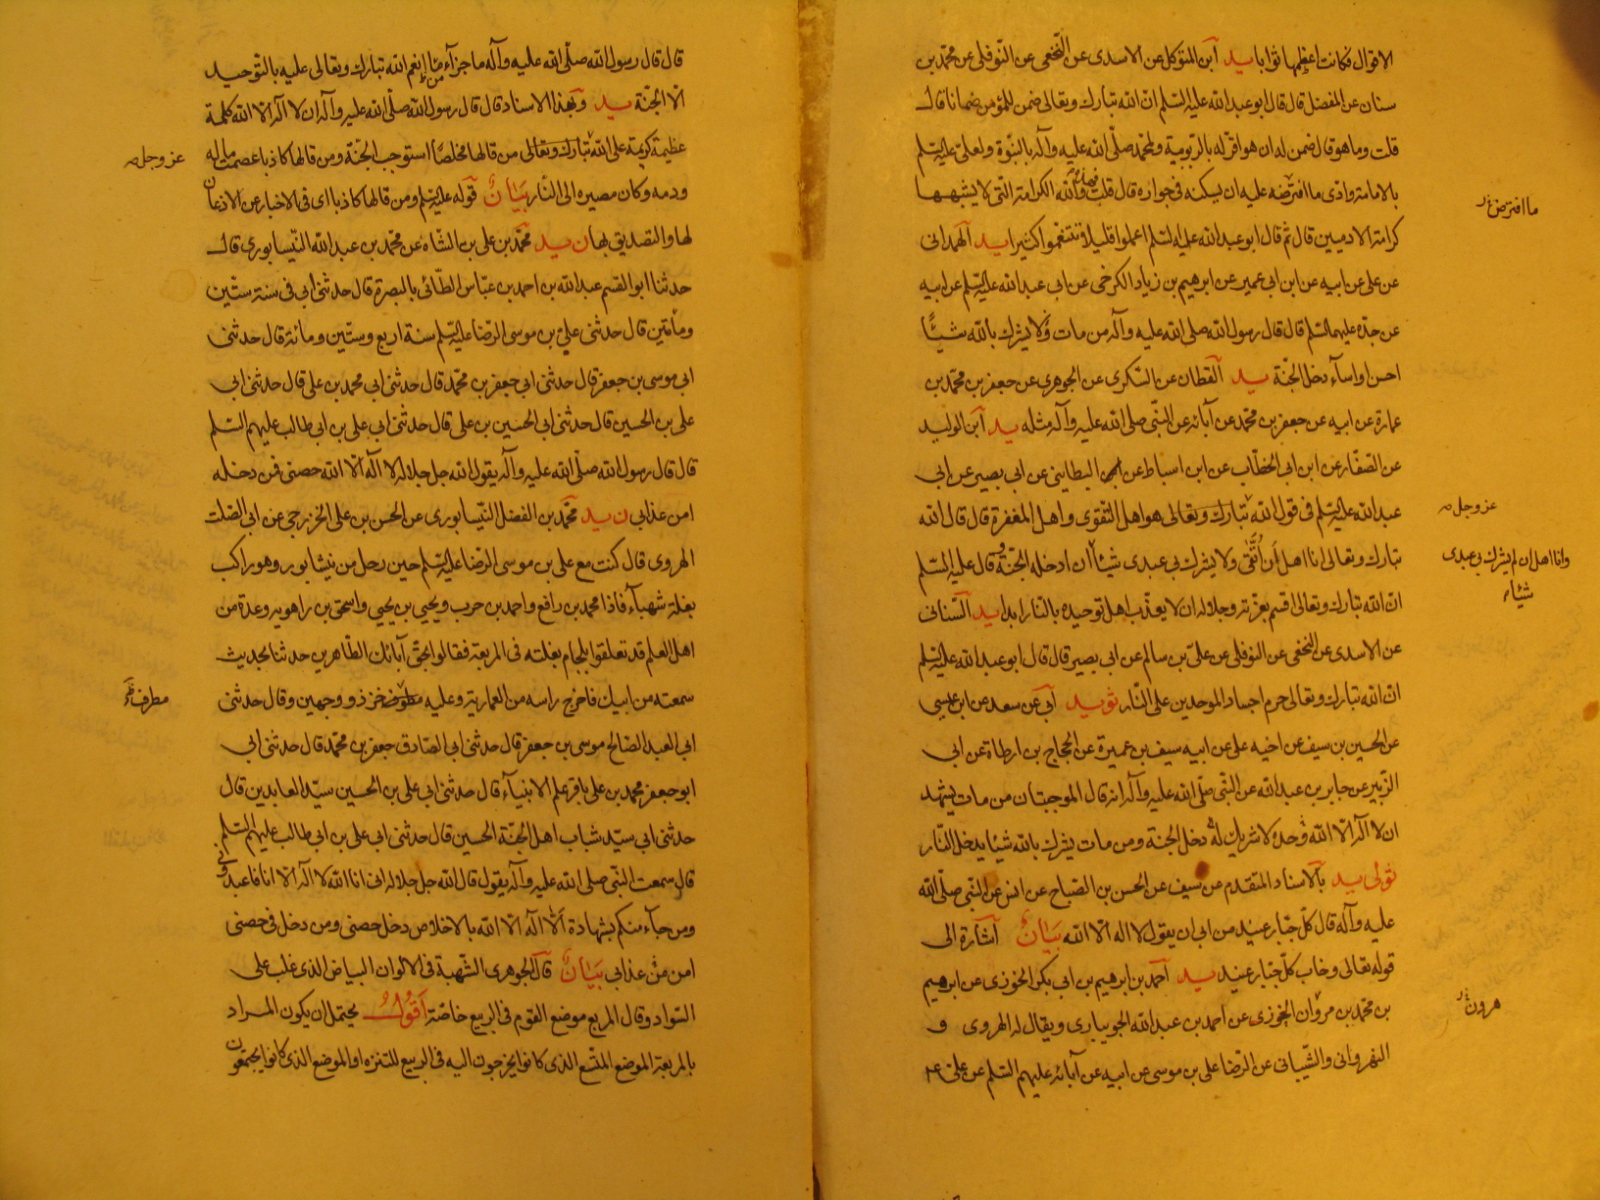 الاقوال فكانت اعظمها ثوابا يد ابن المتوكل عن الاسدى عن النخعى عن النوفلى عن محمد بن
سنان عن المفضل قال قال ابو عبد الله عليه السلم ان الله تبارك وتعالى ضمن للمؤمن ضمانا قال
قلت وما هو قال ضمن له ان هو اقر له بالربوبية ولمحمد صلى الله عليه وآله بالنبوة ولعلى عليه السلم
بالامامة وادى ما افترضه عليه ان يسكنه فى جواره قال قلت فهذه والله الكرامة التى لا يشبهها
ما افترض
كرامة الادميين قال ثم قال ابو عبد الله عليه السلم اعملوا قليلا تتنعموا كثيرا يد الهمدانى
عن على عن ابيه عن ابن ابى عمير عن ابرهيم بن زياد الكرخى عن ابى عبد الله عليه السلم عن ابيه
عن جده عليهما السلم قال قال رسول الله صلى الله عليه وآله من مات ولا يشرك بالله شيئًا
احسن او اساء دخل الجنة يد القطان عن السكرى عن الجوهرى عن جعفر بن محمد بن
عمارة عن ابيه عن جعفر بن محمد عن آبائه عن النبى صلى الله عليه وآله مثله يد ابن الوليد
عن الصفار عن ابن ابى الخطاب عن ابن اسباط عن البطاينى عن ابى بصير عن ابى
عبد الله عليه السلم فى قول الله تبارك وتعالى هو اهل التقوى واهل المغفرة قال قال الله
عز وجل
تبارك وتعالى انا اهل أن اُتّقى ولا يشرك بى عبدى شيئا ان ادخله الجنة وقال عليه السلم
وانا اهل ان لم يشرك بى عبدى
شيئا
ان الله تبارك وتعالى اقسم بعزته وجلاله ان لا يعذب اهل توحيده بالنار ابدا يد السنانى
عن الاسدى عن النخعى عن النوفلى عن على بن سالم عن ابى بصير قال قال ابو عبد الله عليه السلم
ان الله تبارك وتعالى حرم اجساد الموحدين على النار ثو يد ابى عن سعد عن ابن عيسى
عن الحسين بن سيف عن اخيه على عن ابيه سيف بن عميرة عن الحجاج بن ارطاة عن ابى
الزبير عن جابر بن عبد الله عن النبى صلى الله عليه وآله انه قال الموجبتان من مات يشهد
ان لا اله الا الله وحده لا شريك له دخل الجنة ومن مات يشرك بالله شيئا يدخل النار
يد بالاسناد المتقدم عن سيف عن الحسن بن الصباح عن انس عن النبى صلى الله
عليه وآله قال كل جبار عنيد من ابى ان يقول لا اله الا الله بَيَانٌ اشارة الى
قوله تعالى وخاب كل جبار عنيد يد احمد بن ابرهيم بن ابى بكر الخوزى عن ابرهيم
بن محمد بن مروان الخوزى عن احمد بن عبد الله الجويبارى ويقال له الهروى و
هرون
النهروانى والشيبانى عن الرضا على بن موسى عن ابيه عن آبائه عليهم السلم عن على ع
قال قال رسول الله صلى الله عليه وآله ما جزآء من انعم الله تبارك وتعالى عليه بالتوحيد
الا الجنة يد وبهذا الاسناد قال قال رسول الله صلى الله عليه وآله ان لا اله الا الله كلمة
عظيمة كريمة على الله تبارك وتعالى من قالها مخلصًا استوجب الجنة ومن قالها كاذبا عصمت ماله
عز وجل
ودمه وكان مصيره الى النار بَيَانٌ قوله عليه السلم ومن قالها كاذبا اى فى الاخبار عن الاذعان
لها والتصديق بها ن يد محمد بن على بن الشاه عن محمد بن عبد الله النيسابورى قال
حدثنا ابو القسم عبد الله بن احمد بن عباس الطائى بالبصرة قال حدثنى ابى فى سنة ستين
ومأتين قال حدثنى على بن موسى الرضا عليه السلم سنة اربع وستين ومائة قال حدثنى
ابى موسى بن جعفر قال حدثنى ابى جعفر بن محمد قال حدثنى ابى محمد بن على قال حدثنى ابى
على بن الحسين قال حدثنى ابى الحسين بن على قال حدثنى ابى على بن ابى طالب عليهم السلم
قال قال رسول الله صلى الله عليه وآله يقول الله جل جلاله لا اله الا الله حصنى فمن دخله
امن عذابى ن يد محمد بن الفضل النيسابورى عن الحسن بن على الخزرجى عن ابى الصلت
الهروى قال كنت مع على بن موسى الرضا عليه السلم حين رحل من نيشابور وهو راكب
بغلة شهبآء فاذا محمد بن رافع واحمد بن حرب ويحيى بن يحيى واسحق بن راهويه وعدة من
اهل العلم قد تعلقوا بلجام بغلته فى المربعة فقالوا بحق آبائك الطاهرين حدثنا بحديث
سمعته من ابيك فاخرج راسه من العمارية وعليه خز ذو وجهين وقال حدثنى
مطرف
ابى العبد الصالح موسى بن جعفر قال حدثنى ابى الصادق جعفر بن محمد قال حدثنى ابى
ابو جعفر محمد بن على باقر علم الانبيآء قال حدثنى ابى على بن الحسين سيد العابدين قال
حدثنى ابى سيد شباب اهل الجنة الحسين قال حدثنى ابى على بن ابى طالب عليهم السلم
قال سمعت النبى صلى الله عليه وآله يقول قال الله جل جلاله انى انا الله لا اله الا انا فاعبدونى
ومن جآء منكم بشهادة ان لا اله الا الله بالاخلاص دخل حصنى ومن دخل فى حصنى
امن من عذابى بَيَانٌ قال الجوهرى الشهبة فى الالوان البياض الذى غلب على
السواد وقال المربع موضع القوم فى الربيع خاصة اَقُولُ يحتمل ان يكون المراد
بالمربعة الموضع المتسع الذى كانوا يخرجون اليه فى الربيع للتنزه او الموضع الذى كانوا يجتمعون